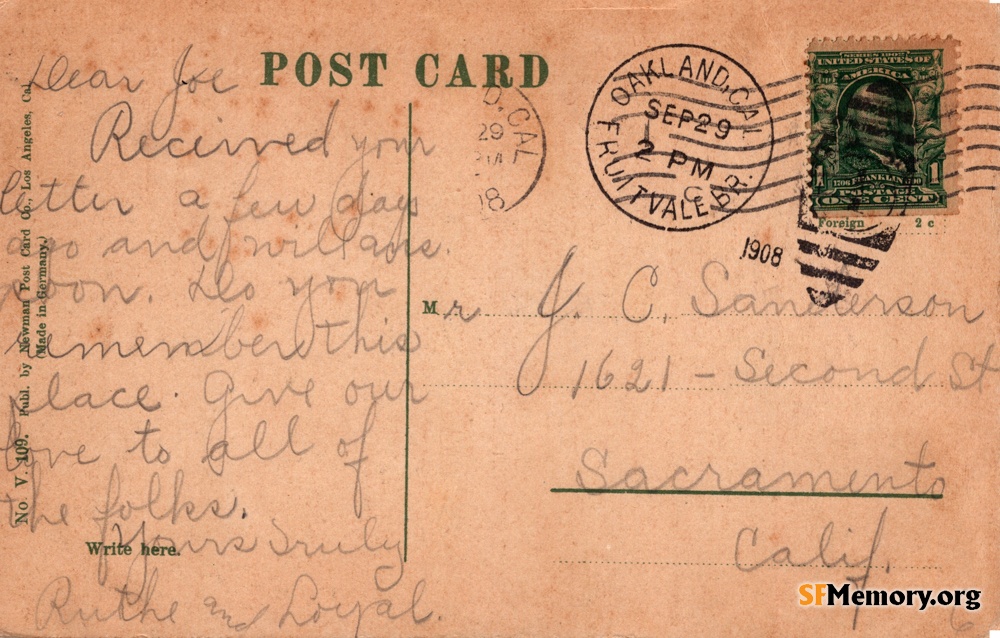 POST CARD
Dear Joe
Received your
letter a few days
ago and will ans.
soon. Do you
remember this
place. Give our
love to all of
the folks.
Yours Truly
Ruthe and Loyal.
Write here.
No. V. 109. Publ. by Newman Post Card Co., Los Angeles, Cal.
(Made in Germany.)
D, CAL
29
PM
08
OAKLAND, CAL
SEP 29
2 PM
C
FRUITVALE BR.
1908
SERIES 1902
UNITED STATES OF
AMERICA
1706 FRANKLIN 1790
POSTAGE
1 1
ONE CENT
Foreign 2 c
Mr. J. C. Sanderson
1621 – Second St
Sacramento
Calif.
SFMemory.org